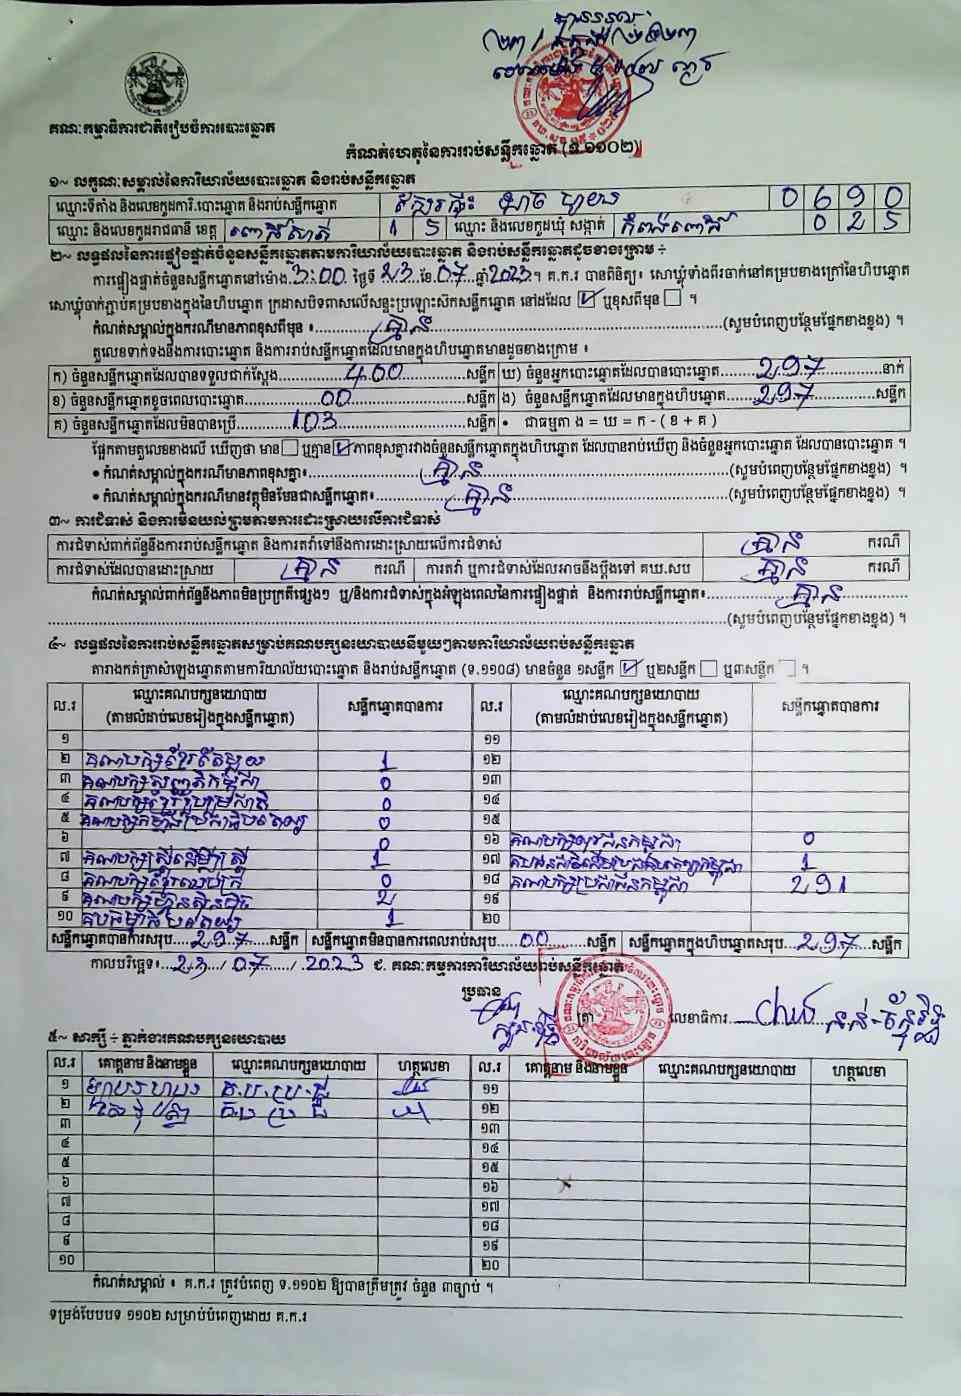 គណៈកម្មាធិការជាតិរៀបចំការបោះឆ្នោត
កំណត់ហេតុនៃការរាប់សន្លឹកឆ្នោត (ទ.១១០២)
១~ លក្ខណៈសម្គាល់នៃការិយាល័យបោះឆ្នោត និងរាប់សន្លឹកឆ្នោត
ឈ្មោះទីតាំង និងលេខកូដការិ.បោះឆ្នោត និងរាប់សន្លឹកឆ្នោត 0 6 9 0
ឈ្មោះ និងលេខកូដរាជធានី ខេត្ត ពោធិ៍សាត់ 1 5 ឈ្មោះ និងលេខកូដឃុំ សង្កាត់ កំពង់ពោធិ៍ 0 2 5
២~ លទ្ធផលនៃការផ្ទៀងផ្ទាត់ចំនួនសន្លឹកឆ្នោតតាមការិយាល័យបោះឆ្នោត និងរាប់សន្លឹកឆ្នោតដូចខាងក្រោម ÷
ការផ្ទៀងផ្ទាត់ចំនួនសន្លឹកឆ្នោតនៅម៉ោង 3:00 ថ្ងៃទី 23 ខែ 07 ឆ្នាំ 2023 ។ គ.ក.រ បានពិនិត្យ៖ សោឃ្លុំទាំងពីរចាក់នៅគម្របខាងក្រៅនៃហិបឆ្នោត
សោឃ្លុំចាក់ភ្ជាប់គម្របខាងក្នុងនៃហិបឆ្នោត ក្រដាសបិទពាសលើសន្ទះប្រឡោះសឹកសន្លឹកឆ្នោត នៅដដែល ☑ ឬខុសពីមុន ☐ ។
កំណត់សម្គាល់ក្នុងករណីមានភាពខុសពីមុន ៖ គ្មាន (សូមបំពេញបន្ថែមផ្នែកខាងខ្នង) ។
តួលេខទាក់ទងនឹងការបោះឆ្នោត និងការរាប់សន្លឹកឆ្នោតដែលមានក្នុងហិបឆ្នោតមានដូចខាងក្រោម ៖
ក) ចំនួនសន្លឹកឆ្នោតដែលបានទទួលជាក់ស្តែង 400 សន្លឹក ឃ) ចំនួនអ្នកបោះឆ្នោតដែលបានបោះឆ្នោត 297 នាក់
ខ) ចំនួនសន្លឹកឆ្នោតខូចពេលបោះឆ្នោត 00 សន្លឹក ង) ចំនួនសន្លឹកឆ្នោតដែលមានក្នុងហិបឆ្នោត 297 សន្លឹក
គ) ចំនួនសន្លឹកឆ្នោតដែលមិនបានប្រើ 103 សន្លឹក • ជាធម្មតា ង = ឃ = ក - ( ខ + គ )
ផ្អែកតាមតួលេខខាងលើ ឃើញថា មាន ☐ ឬគ្មាន ☑ ភាពខុសគ្នារវាងចំនួនសន្លឹកឆ្នោតក្នុងហិបឆ្នោត ដែលបានរាប់ឃើញ និងចំនួនអ្នកបោះឆ្នោត ដែលបានបោះឆ្នោត ។
• កំណត់សម្គាល់ក្នុងករណីមានភាពខុសគ្នា៖ គ្មាន (សូមបំពេញបន្ថែមផ្នែកខាងខ្នង) ។
• កំណត់សម្គាល់ក្នុងករណីមានវត្ថុមិនមែនជាសន្លឹកឆ្នោត៖ គ្មាន (សូមបំពេញបន្ថែមផ្នែកខាងខ្នង) ។
៣~ ការជំទាស់ និងការមិនយល់ព្រមតាមការដោះស្រាយលើការជំទាស់
ការជំទាស់ពាក់ព័ន្ធនឹងការរាប់សន្លឹកឆ្នោត និងការតវ៉ាទៅនឹងការដោះស្រាយលើការជំទាស់ គ្មាន ករណី
ការជំទាស់ដែលបានដោះស្រាយ គ្មាន ករណី ការតវ៉ា ឬការជំទាស់ដែលអាចនឹងប្តឹងទៅ គឃ.សប គ្មាន ករណី
កំណត់សម្គាល់ពាក់ព័ន្ធនឹងភាពមិនប្រក្រតីផ្សេងៗ ឬ/និងការជំទាស់ក្នុងអំឡុងពេលនៃការផ្ទៀងផ្ទាត់ និងការរាប់សន្លឹកឆ្នោត៖ គ្មាន
(សូមបំពេញបន្ថែមផ្នែកខាងខ្នង) ។
៤~ លទ្ធផលនៃការរាប់សន្លឹកឆ្នោតសម្រាប់គណបក្សនយោបាយនីមួយៗតាមការិយាល័យរាប់សន្លឹកឆ្នោត
តារាងកត់ត្រាសំឡេងឆ្នោតតាមការិយាល័យបោះឆ្នោត និងរាប់សន្លឹកឆ្នោត (ទ.១១០៨) មានចំនួន ១សន្លឹក ☑ ឬ២សន្លឹក ☐ ឬ៣សន្លឹក ☐ ។
ល.រ ឈ្មោះគណបក្សនយោបាយ (តាមលំដាប់លេខរៀងក្នុងសន្លឹកឆ្នោត) សន្លឹកឆ្នោតបានការ ល.រ ឈ្មោះគណបក្សនយោបាយ (តាមលំដាប់លេខរៀងក្នុងសន្លឹកឆ្នោត) សន្លឹកឆ្នោតបានការ
១ ១១
២ គណបក្សខ្មែរតែមួយ 1 ១២
៣ គណបក្សសញ្ជាតិកម្ពុជា 0 ១៣
៤ គណបក្សខ្មែររួបរួមជាតិ 0 ១៤
៥ 0 ១៥
៦ 0 ១៦ គណបក្សយុវជនកម្ពុជា 0
៧ គណបក្សស្ត្រីដើម្បីស្ត្រី 1 ១៧ 1
៨ 0 ១៨ គណបក្សប្រជាជនកម្ពុជា 291
៩ គណបក្សហ្វ៊ុនស៊ិនប៉ិច 2 ១៩
១០ គបធម្មាធិបតេយ្យ 1 ២០
សន្លឹកឆ្នោតបានការសរុប 297 សន្លឹក សន្លឹកឆ្នោតមិនបានការពេលរាប់សរុប 00 សន្លឹក សន្លឹកឆ្នោតក្នុងហិបឆ្នោតសរុប 297 សន្លឹក
កាលបរិច្ឆេទ៖ 23 / 07 / 2023 ជ. គណៈកម្មការការិយាល័យរាប់សន្លឹកឆ្នោត
ប្រធាន ត្រា លេខាធិការ
៥~ សាក្សី ÷ ភ្នាក់ងារគណបក្សនយោបាយ
ល.រ គោត្តនាម និងនាមខ្លួន ឈ្មោះគណបក្សនយោបាយ ហត្ថលេខា ល.រ គោត្តនាម និងនាមខ្លួន ឈ្មោះគណបក្សនយោបាយ ហត្ថលេខា
១ ១១
២ ១២
៣ ១៣
៤ ១៤
៥ ១៥
៦ ១៦
៧ ១៧
៨ ១៨
៩ ១៩
១០ ២០
កំណត់សម្គាល់ ៖ គ.ក.រ ត្រូវបំពេញ ទ.១១០២ ឱ្យបានត្រឹមត្រូវ ចំនួន ៣ច្បាប់ ។
ទម្រង់បែបបទ ១១០២ សម្រាប់បំពេញដោយ គ.ក.រ